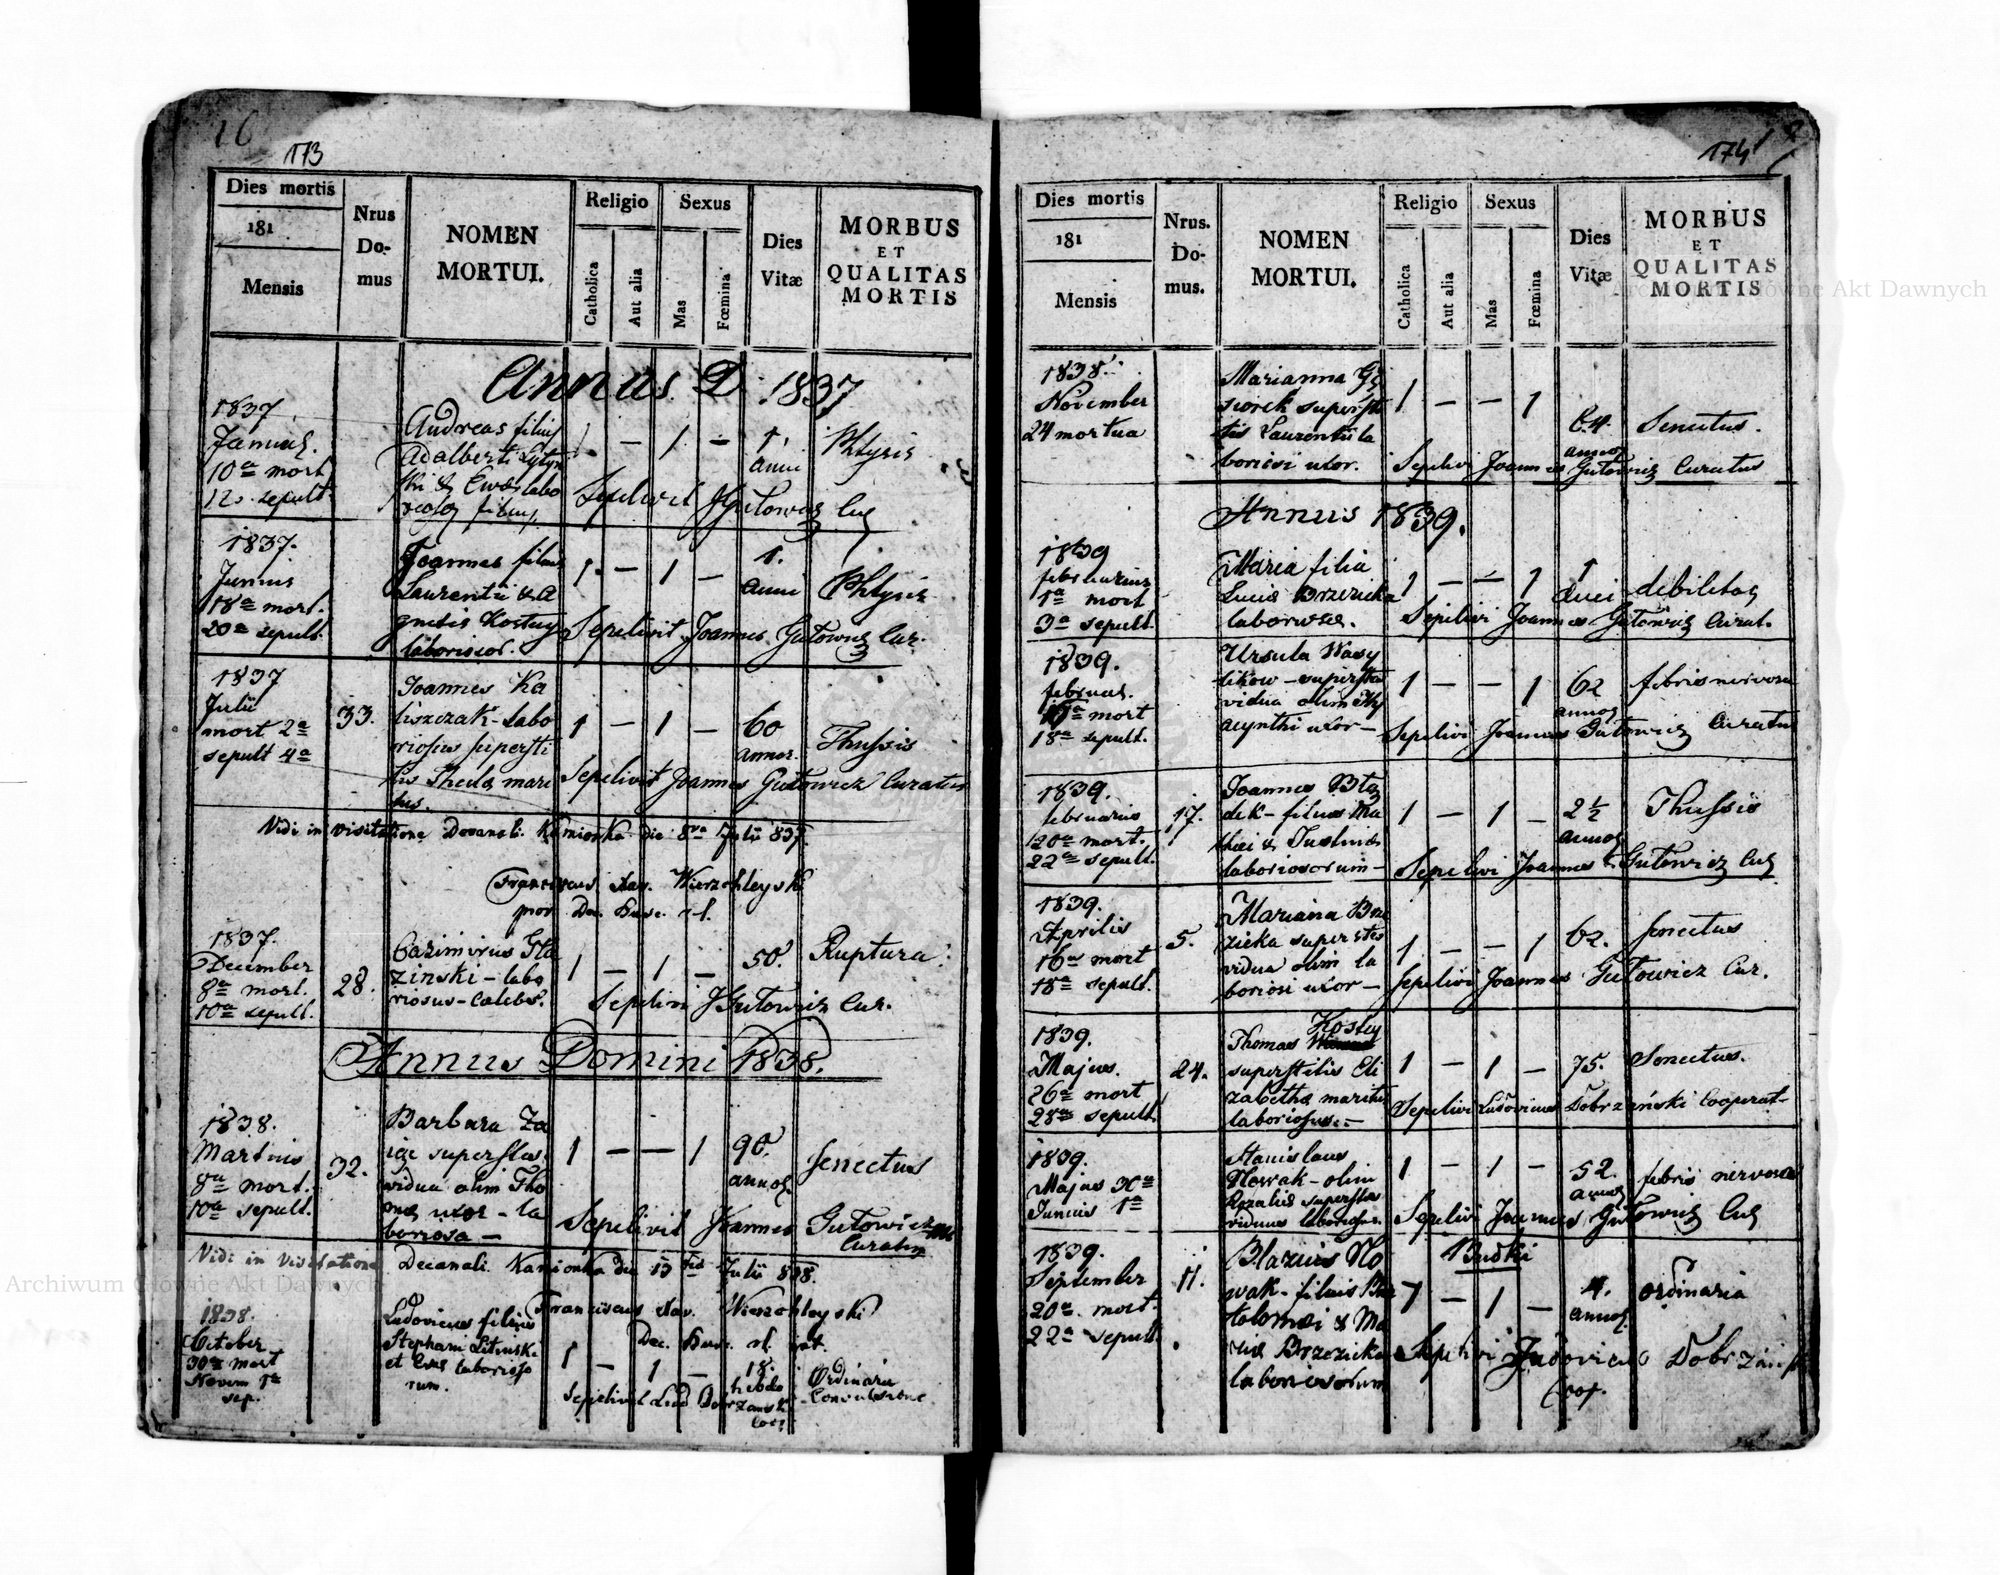 16
173
Dies mortis
181
Mensis
Nrus
Do-
mus
NOMEN
MORTUI.
Religio
Catholica
Aut alia
Sexus
Mas
Fœmina
Dies
Vitæ
MORBUS
ET
QUALITAS
MORTIS
Annus D 1837
1837
Januar.
10ª mort
12. sepult
Andreas filius
Adalberti
& Evæ labo
filius
1 — 1 — 1.
anni
Phtysis
Sepelivit JGutowicz Cur
1837.
Junius
18ª mort.
20ª sepult.
Joannes filius
Laurentii & A
gnetis Kostuy
laboriosor.
1. — 1 — 1.
anni
Phtysis
Sepelivit Joannes Gutowicz Cur.
1837
Julii
mort 2ª
sepult 4ª
33.
Joannes Ka
liszczak - labo
riosus supersti
tis Theclæ mari
tus.
1 — 1 — 60
annor.
Thussis
Sepelivit Joannes Gutowicz Curatus
Vidi in visitatione Decanali Kamionka die 8va Julii 837.
Franciscus Xav. Wierzchleyski
Dec.
1837.
December
8ª mort.
10ª sepult.
28.
Casimirus Gła
zinski - labo
riosus - cælebs.
1 — 1 — 50.
Ruptura.
Sepelivi JGutowicz Cur.
Annus Domini 1838.
1838.
Martius
8ª mort.
10ª sepult.
32.
Barbara Za
superstes
vidua olim Tho
mæ uxor - la
boriosa —
1 — — 1 90.
annor.
senectus
Sepelivit Joannes Gutowicz
Curatus
Vidi in Visitatione Decanali Kamionka die 13 Julii 838.
Franciscus Xav. Wierzchleyski
Dec.
1838.
October
30ª mort
Novem 1ª
sep.
Ludovicus filius
Stephani Litinski
et Evæ laborioso
rum.
1 — 1 — 18.
hebdo
Ordinaria
Convulsione
Sepelivit Lud Dobrzanski
Coop
174
Dies mortis
181
Mensis
Nrus.
Do-
mus.
NOMEN
MORTUI.
Religio
Catholica
Aut alia
Sexus
Mas
Fœmina
Dies
Vitæ
MORBUS
ET
QUALITAS
MORTIS
1838.
November
24 mortua
Marianna Gę
siorek superst
tis Laurentii la
boriosi uxor.
1 — — 1 64.
annor
Senectus.
Sepelivi Joannes Gutowicz Curatus
Annus 1839.
1839
februarius
1ª mort
3ª sepult.
Maria filia
Luciæ Brzezicka
laboriosæ.
1 — — 1 1
diei
debilitas
Sepelivi Joannes Gutowicz Curat.
1839.
februar.
mort
18ª sepult.
Ursula Wasy
likow - superstes
vidua olim Hy
acynthi uxor —
1 — — 1 62
annor
febris nervosa
Sepelivi Joannes Gutowicz Curatus
1839.
februarius
20ª mort.
22ª sepult.
17.
Joannes
dek - filius Ma
thæi & Justinæ
laboriosorum —
1 — 1 — 2½
annor
Thussis
Sepelivi Joannes Gutowicz Cur
1839.
Aprilis
16ª mort
18ª sepult.
5.
Mariana Brze
zicka superstes
vidua olim la
boriosi uxor —
1 — — 1 62.
senectus
Sepelivi Joannes Gutowicz Cur.
1839.
Majus.
26ª mort
28ª sepult.
24.
Kostuy
Thomas
superstitis Eli
zabethæ maritus
laboriosus. —
1 — 1 — 75.
Senectus.
Sepelivi Ludovicus Dobrzański Cooperat-
1839.
Majus 30ª
Junius 1ª
Stanislaus
Nowak - olim
Rozaliæ superstes
viduus laboriosus.
1 — 1 — 52.
annor
febris nervosa
Sepelivi Joannes Gutowicz Cur
1839.
September
20ª mort.
22ª sepult.
11.
Blazius No
wak - filius Bar
tolomæi & Ma
riæ Brzezicka
laboriosorum
Budki
1 — 1 — 4.
annor.
ordinaria
Sepelivi Ludovicus Dobrzański
Coop.
Archiwum Główne Akt Dawnych
Archiwum Główne Akt Dawnych